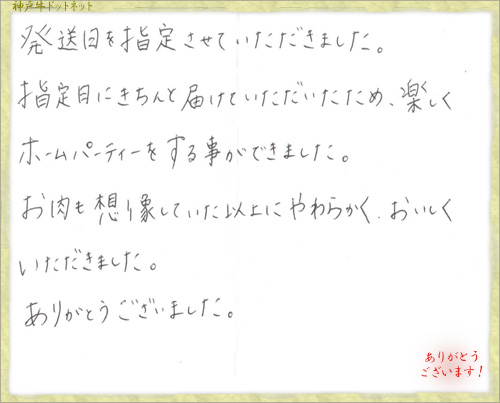 神戸牛ドットネット
発送日を指定させていただきました。
指定日にきちんと届けていただいたため、楽しく
ホームパーティーをする事ができました。
お肉も想像していた以上にやわらかく、おいしく
いただきました。
ありがとうございました。
ありがとう
ございます!